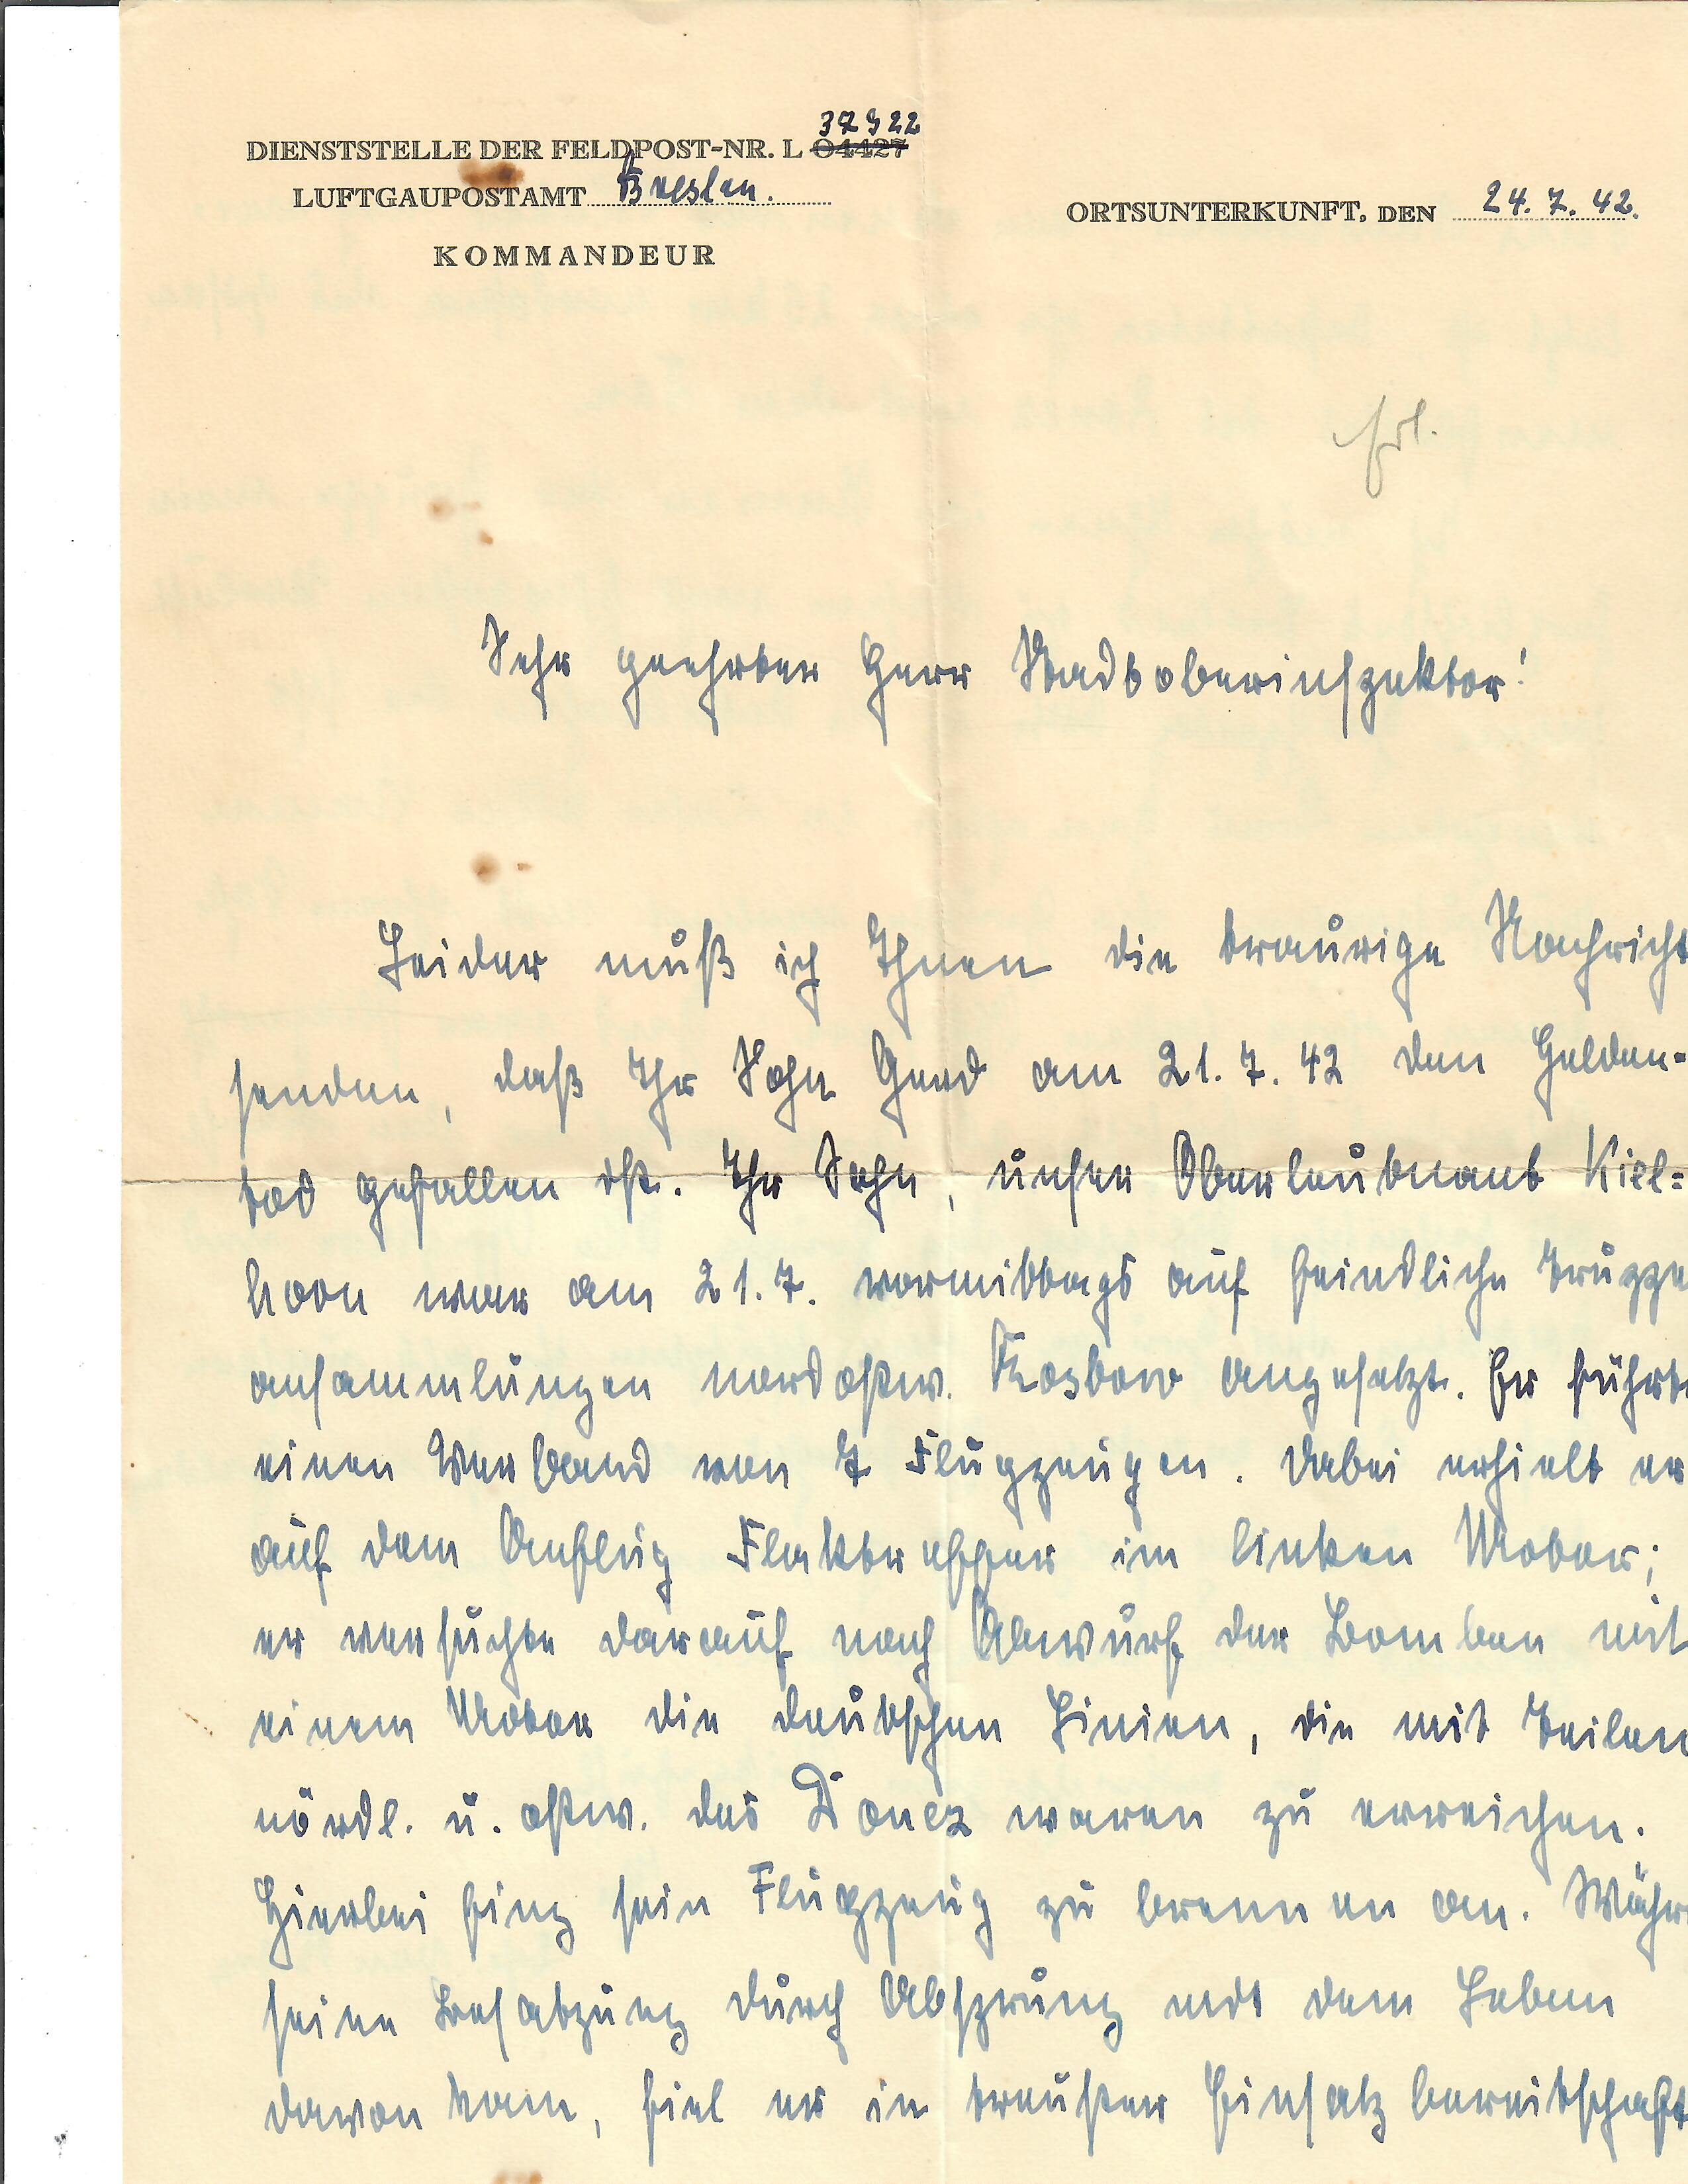 37922
DIENSTSTELLE DER FELDPOST-NR. L 04427
LUFTGAUPOSTAMT Breslau.
ORTSUNTERKUNFT, DEN 24. 7. 42.
KOMMANDEUR
Erl.
Sehr geehrter Herr Stadtoberinspektor!
Leider muß ich Ihnen die traurige Nachricht
senden, daß Ihr Sohn Gerd am 21. 7. 42 den Helden-
tod gefallen ist. Ihr Sohn, unser Oberleutnant Kiel=
horn war am 21. 7. vormittags auf feindliche Truppe
ansammlungen nordostw. Rostow angesetzt. Er führte
einen Verband von 7 Flugzeugen. Dabei erhielt er
auf dem Anflug Flaktreffer im linken Motor;
er versuchte darauf nach Abwurf der Bomben mit
einem Motor die deutschen Linien, die mit Teilen
nördl. u. ostw. des Donez waren zu erreichen.
Hierbei fing sein Flugzeug zu brennen an. Währ
seine Besatzung durch Absprung mit dem Leben
davon kam, fiel er in treuster Einsatzbereitschaft